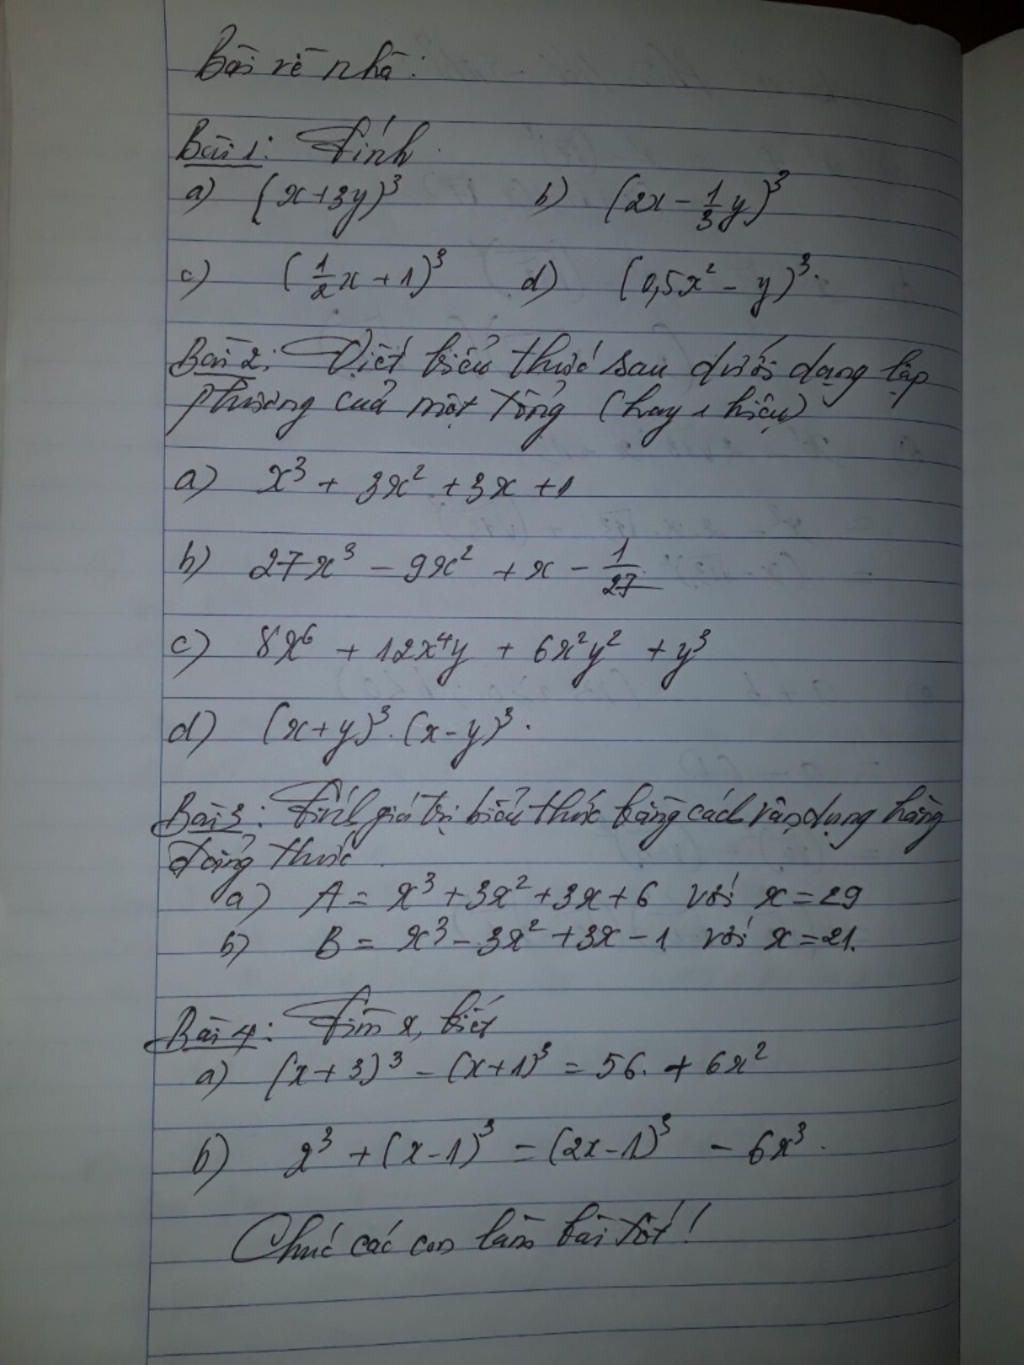 Bài về nhà:
Bài 1: Tính
a) (x+3y)³ b) (2x - 1/3 y)³
c) (1/2 x + 1)³ d) (0,5x² - y)³.
Bài 2: Viết biểu thức sau dưới dạng lập
phương của một tổng (hay 1 hiệu)
a) x³ + 3x² + 3x + 1
b) 27x³ - 9x² + x - 1/27
c) 8x⁶ + 12x⁴y + 6x²y² + y³
d) (x+y)³.(x-y)³.
Bài 3: Tính giá trị biểu thức bằng cách vận dụng hằng
đẳng thức
a) A = x³ + 3x² + 3x + 6 với x = 29
b) B = x³ - 3x² + 3x - 1 với x = 21.
Bài 4: Tìm x, biết
a) (x+3)³ - (x+1)³ = 56. + 6x²
b) x³ + (x-1)³ = (2x-1)³ - 6x³.
Chúc các con làm bài tốt!